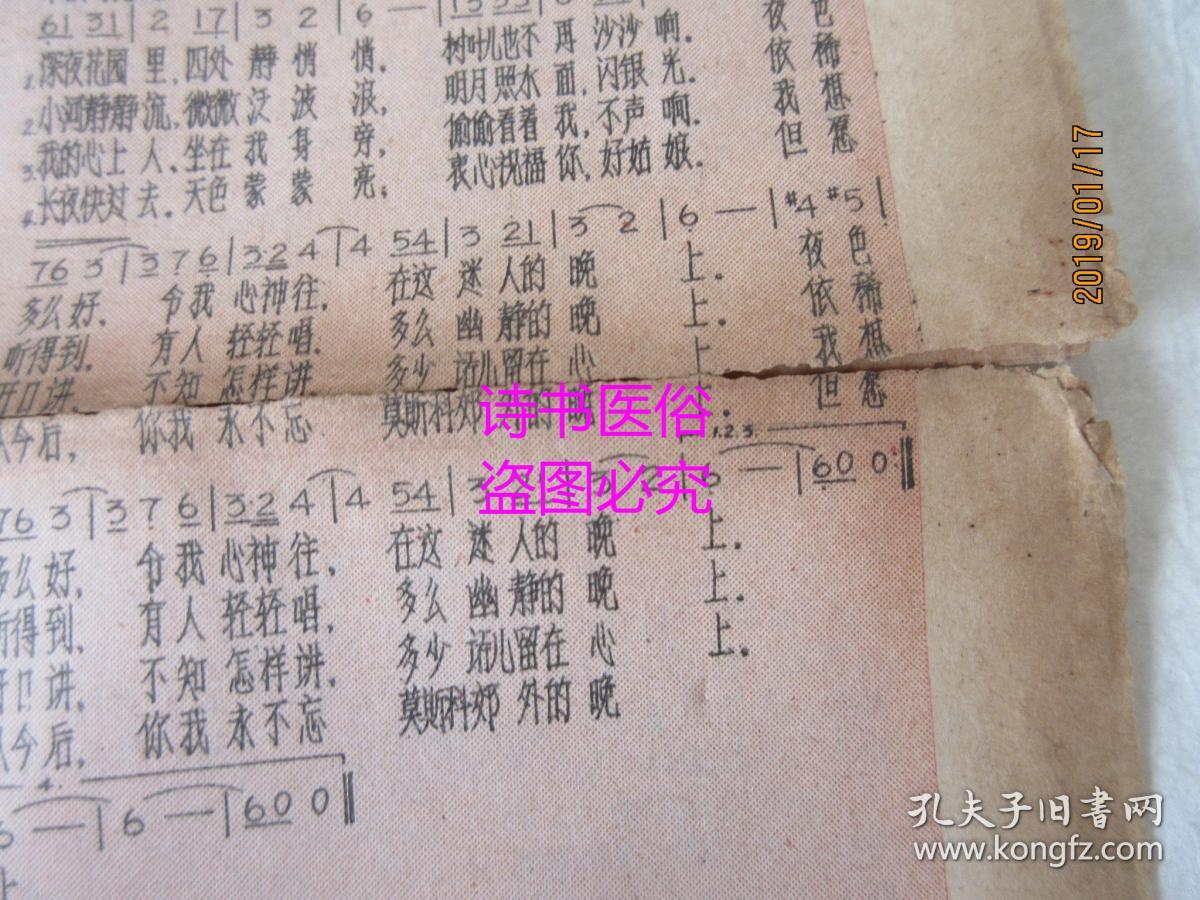 61 31 | 2 17 | 3 2 | 6 — |
1.深夜花园 里,四处 静 悄 悄. 树叶儿也不 再 沙沙 响. 夜 色
2.小河静静 流,微微 泛 波 浪, 明月照水 面,闪银 光. 依 稀
3.我的心上 人,坐在 我 身 旁, 偷偷看着 我,不声 响. 我 想
4.长夜快过 去,天色 蒙 蒙 亮; 衷心祝福 你,好姑 娘. 但 愿
76 3 | 3 7 6 | 3·2 4 | 4 54 | 3 21 | 3 2 | 6 — | #4 #5 |
多么好, 令我 心神往, 在这 迷 人的 晚 上. 夜 色
听得到, 有人 轻轻唱, 多么 幽 静的 晚 上. 依 稀
开口讲, 不知 怎样讲, 多少 话儿留在 心 上. 我 想
从今后, 你我 永不忘 莫斯科郊 外的 晚 上. 但 愿
1.2.3.
76 3 | 3 7 6 | 3·2 4 | 4 54 | 3 — | 60 0 ‖
多么好, 令我 心神往, 在这 迷 人的 晚 上.
听得到, 有人 轻轻唱, 多么 幽 静的 晚 上.
开口讲, 不知 怎样讲, 多少 话儿留在 心 上.
从今后, 你我 永不忘 莫斯科郊 外的 晚
4.
6 — | 6 — | 60 0 ‖
上
2019/01/17
诗书医俗
盗图必究
孔夫子旧书网
www.kongfz.com